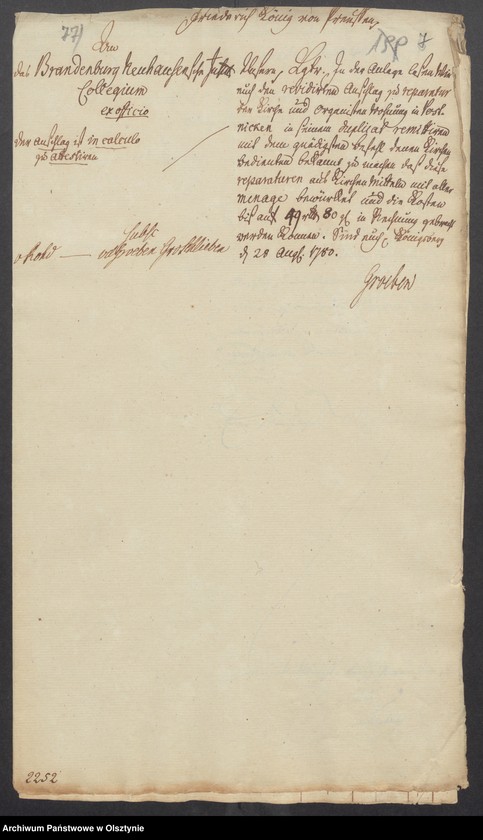 Friederich König von Preussen,
77)
7
An
das Brandenburg Neuhausensche Justiz
Collegium
ex officio
der Anschlag ist in calculo
zu attestiren
Unsern, In der Anlage lassen Wir
euch den revidirten Anschlag zu reparatur
der Kirche und Organisten Wohnung in Post-
nicken in seinem duplicat remittiren
mit dem gnädigsten Befehl denen Kirchen
bedienten bekannt zu machen daß diese
reparaturen aus Kirchen Mitteln mit aller
menage bewürcket und die Kosten
bis auf 49 rth 80 g in Rechnung gebracht
werden können. Sind euch Königsberg
d 28 Aug. 1780.
Groeben
subsc
vGroeben
2252
Archiwum Państwowe w Olsztynie